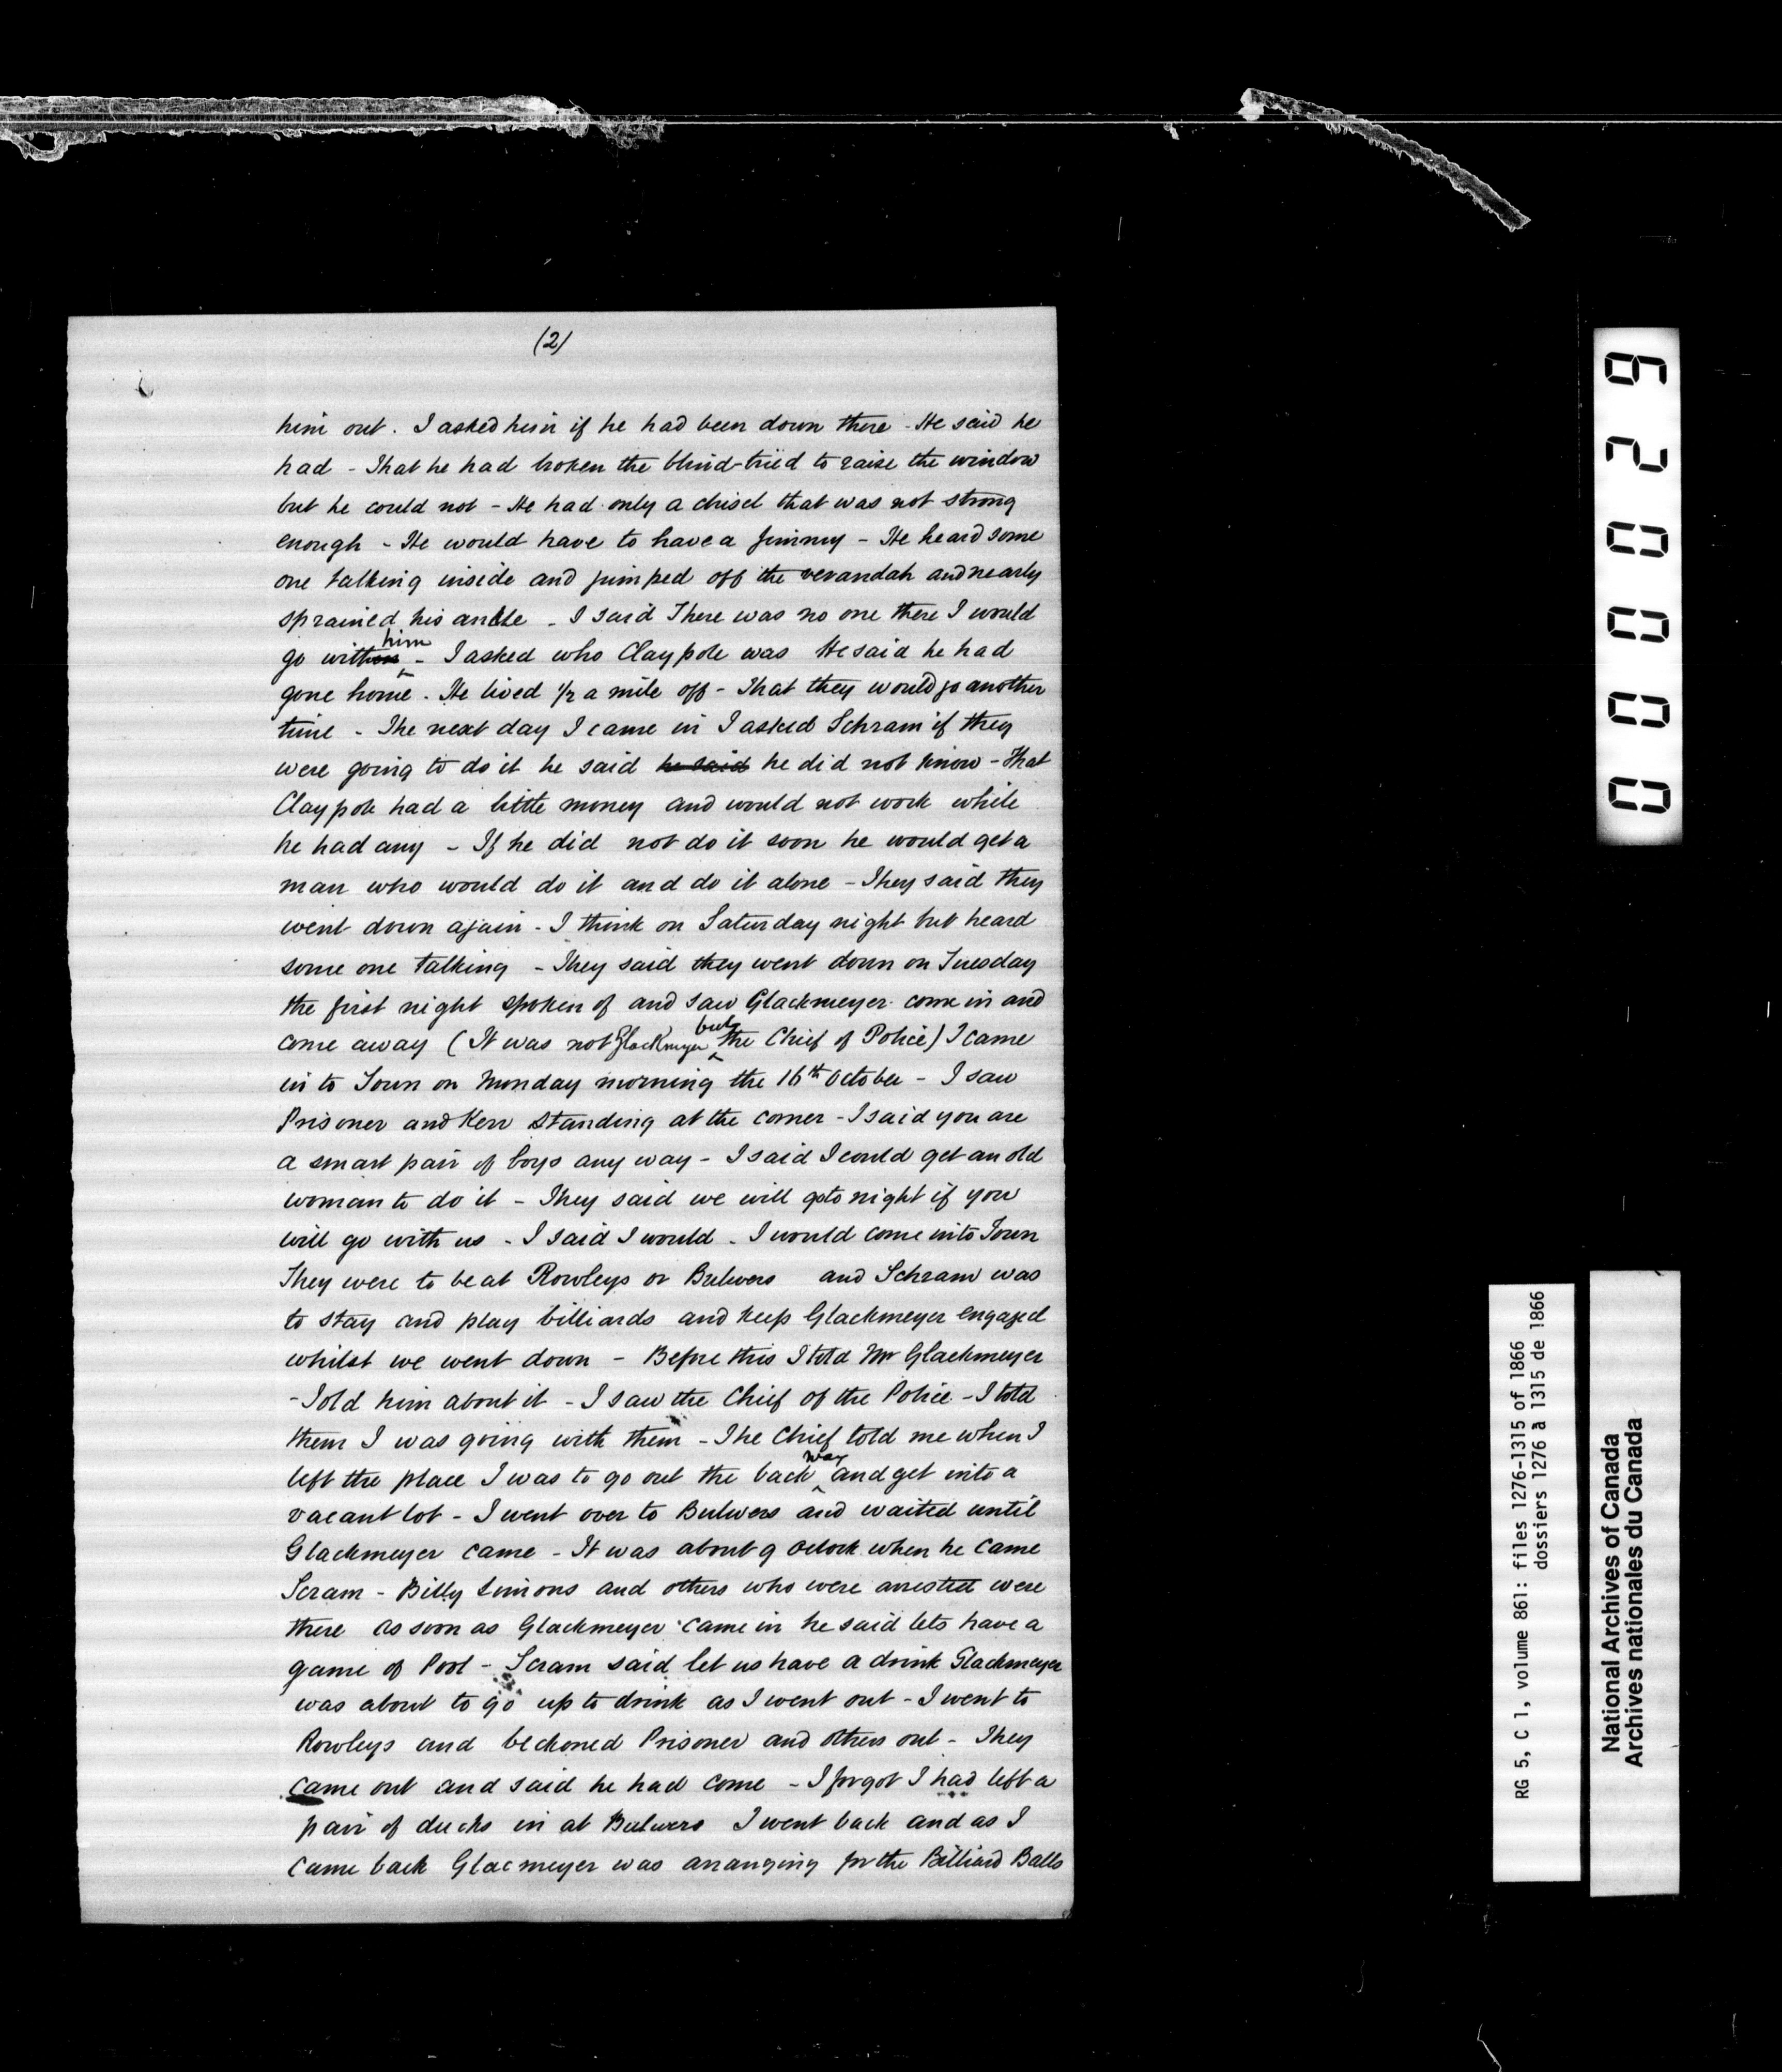 (2)
him out. I asked him if he had been down there - He said he
had - That he had broken the blind - tried to raise the window
but he could not - He had only a chisel that was not strong
enough - He would have to have a Jimmy - He heard some
one talking inside and jumped off the verandah and nearly
sprained his ankle - I said There was no one there I would
go with him - I asked who Claypole was He said he had
gone home. He lived 1/2 a mile off - That they would go another
time - The next day I came in I asked Schram if they
were going to do it he said he said he did not know - That
Claypole had a little money and would not work while
he had any - If he did not do it soon he would get a
man who would do it and do it alone - They said they
went down again - I think on Saturday night but heard
some one talking - They said they went down on Tuesday
the first night spoken of and saw Glackmeyer come in and
come away (It was not Glackmeyer but the Chief of Police) I came
in to Town on Monday morning the 16th October - I saw
Prisoner and Kerr standing at the corner - I said you are
a smart pair of boys any way - I said I could get an old
woman to do it - They said we will go to night if you
will go with us - I said I would - I would come into Town
They were to be at Rowleys or Bulwers and Schram was
to stay and play billiards and keep Glackmeyer engaged
whilst we went down - Before this I told Mr Glackmeyer
- Told him about it - I saw the Chief of the Police - I told
them I was going with them - The Chief told me when I
left the place I was to go out the back way and get into a
vacant lot - I went over to Bulwers and waited until
Glackmeyer came - It was about 9 Oclock when he came
Scram - Billy Simons and others who were arrested were
there as soon as Glackmeyer came in he said lets have a
game of Pool - Scram said let us have a drink Glackmeyer
was about to go up to drink as I went out - I went to
Rowleys and beckoned Prisoner and others out - They
came out and said he had come - I forgot I had left a
pair of ducks in at Bulwers I went back and as I
came back Glacmeyer was arranging for the Billiard Balls
00029
RG 5, C 1, volume 861: files 1276-1315 of 1866
dossiers 1276 à 1315 de 1866
National Archives of Canada
Archives nationales du Canada